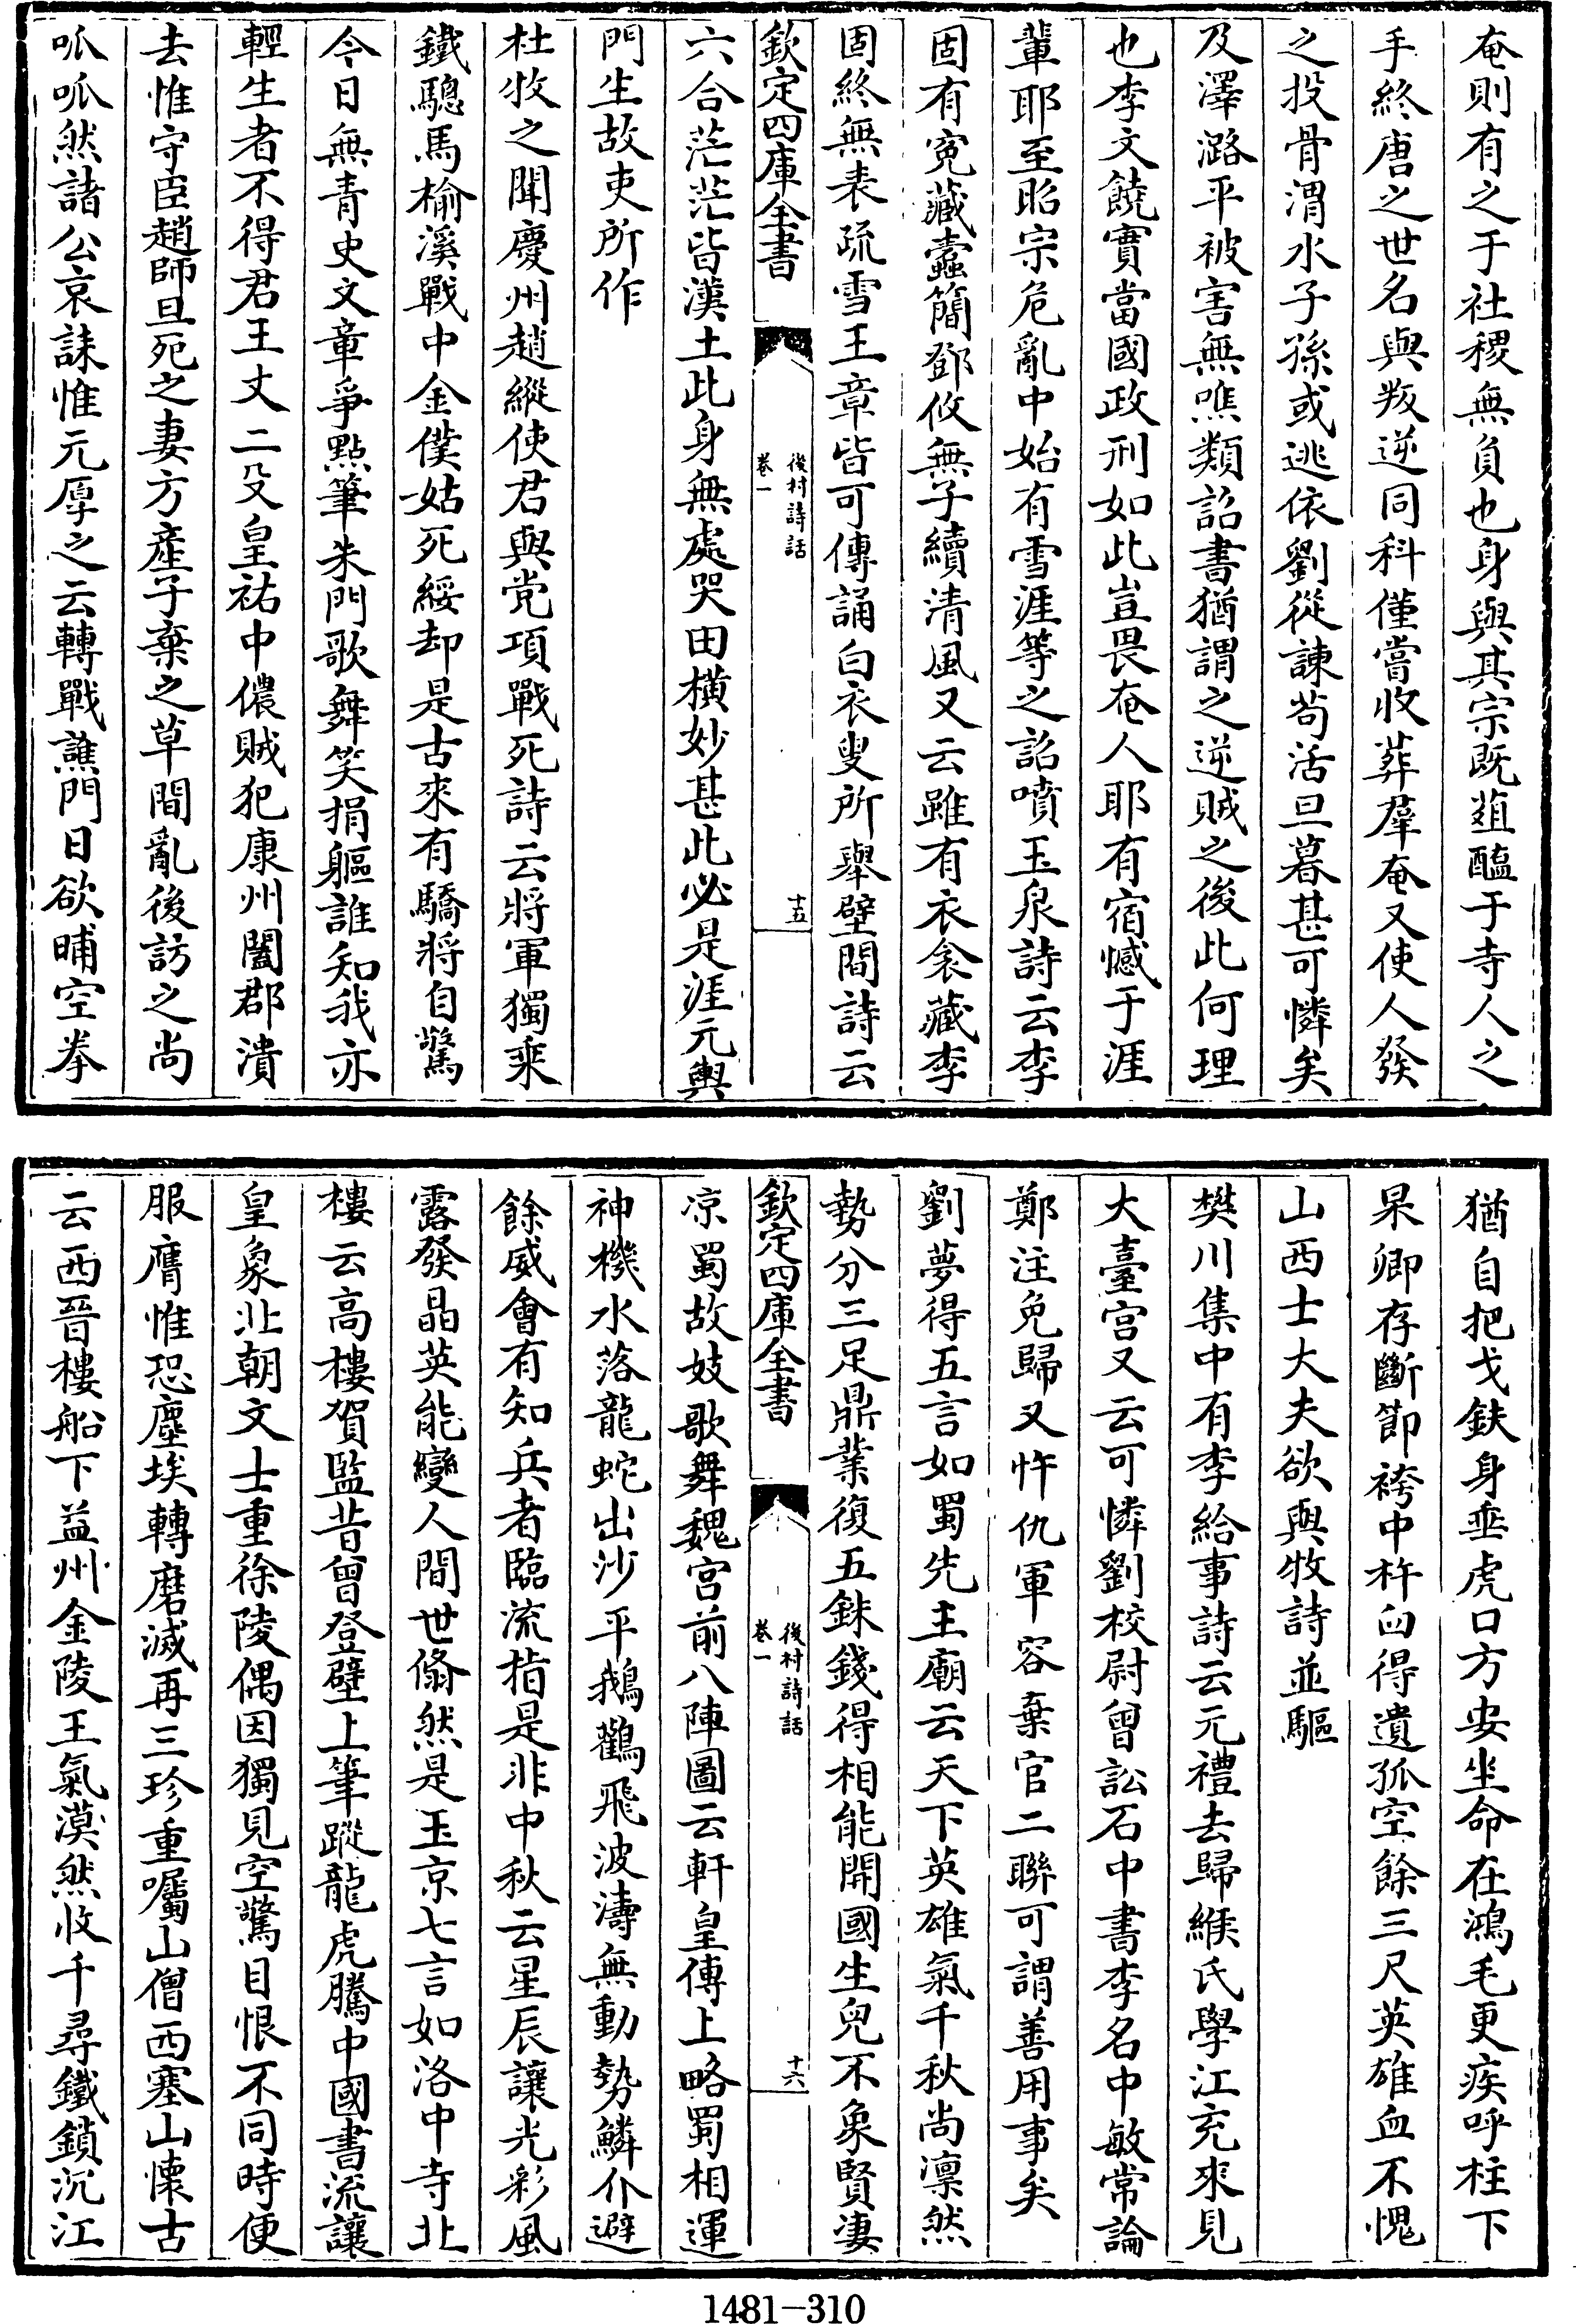 奄則有之于社稷無負也身與其宗既葅醢于寺人之
手終唐之世名與叛逆同科僅嘗收葬羣奄又使人發
之投骨渭水子孫或逃依劉從諫茍活旦暮甚可憐矣
及澤潞平被害無噍類詔書猶謂之逆賊之後此何理
也李文饒實當國政刑如此豈畏奄人耶有宿憾于涯
輩耶至昭宗危亂中始有雪涯等之詔噴玉泉詩云李
固有寃藏蠹簡鄧攸無子續清風又云雖有衣衾藏李
固終無表疏雪王章皆可傳誦白衣叟所舉壁間詩云
欽定四庫全書
後村詩話
卷一
十五
六合茫茫皆漢土此身無處哭田橫妙甚此必是涯元輿
門生故吏所作
杜牧之聞慶州趙縱使君與党項戰死詩云將軍獨乘
鐵驄馬榆溪戰中金僕姑死綏却是古來有驕將自驚
今日無青史文章爭點筆朱門歌舞笑捐軀誰知我亦
輕生者不得君王丈二殳皇祐中儂賊犯康州闔郡潰
去惟守臣趙師旦死之妻方產子棄之草間亂後訪之尚
呱呱然諸公哀誄惟元厚之云轉戰譙門日欲晡空拳
猶自把戈鈇身垂虎口方安坐命在鴻毛更疾呼柱下
杲卿存斷節袴中杵臼得遺孤空餘三尺英雄血不愧
山西士大夫欲與牧詩並驅
樊川集中有李給事詩云元禮去歸緱氏學江充來見
大臺宮又云可憐劉校尉曾訟石中書李名中敏常論
鄭注免歸又忤仇軍容棄官二聯可謂善用事矣
劉夢得五言如蜀先主廟云天下英雄氣千秋尚凛然
勢分三足鼎業復五銖錢得相能開國生兒不象賢凄
欽定四庫全書
後村詩話
卷一
十六
凉蜀故妓歌舞魏宮前八陣圖云軒皇傳上略蜀相運
神機水落龍蛇出沙平鵝鸛飛波濤無動勢鱗介避
餘威會有知兵者臨流指是非中秋云星辰讓光彩風
露發晶英能變人間世翛然是玉京七言如洛中寺北
樓云高樓賀監昔曾登壁上筆蹤龍虎騰中國書流讓
皇象北朝文士重徐陵偶因獨見空驚目恨不同時便
服膺惟恐塵埃轉磨滅再三珍重囑山僧西塞山懷古
云西晉樓船下益州金陵王氣漠然收千尋鐵鎖沉江
1481-310